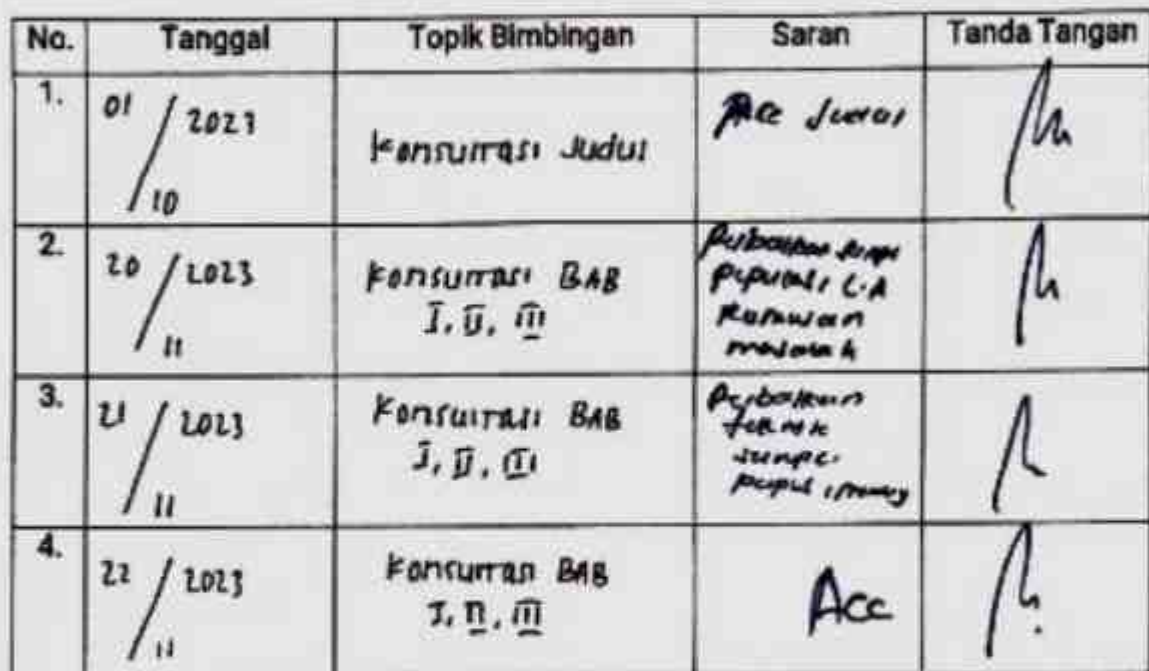 No. Tanggal Topik Bimbingan Saran Tanda Tangan
1. 01/10 2023 Konsultasi Judul Acc Judul
2. 20/11 2023 Konsultasi BAB
I, II, III
Perbaikan
populasi
masalah
3. 21/11 2023 Konsultasi BAB
I, II, III
Perbaikan
4. 22/11 2023 Konsultasi BAB
I, II, III
Acc